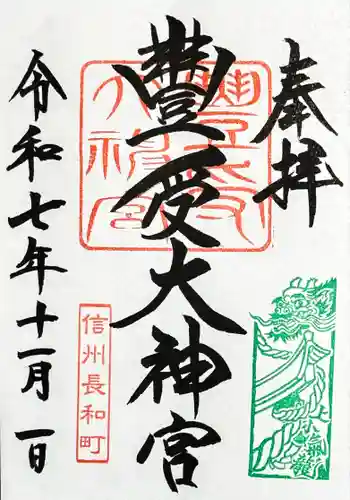 奉拝
豐受大神宮
令和七年十一月一日
信州長和町